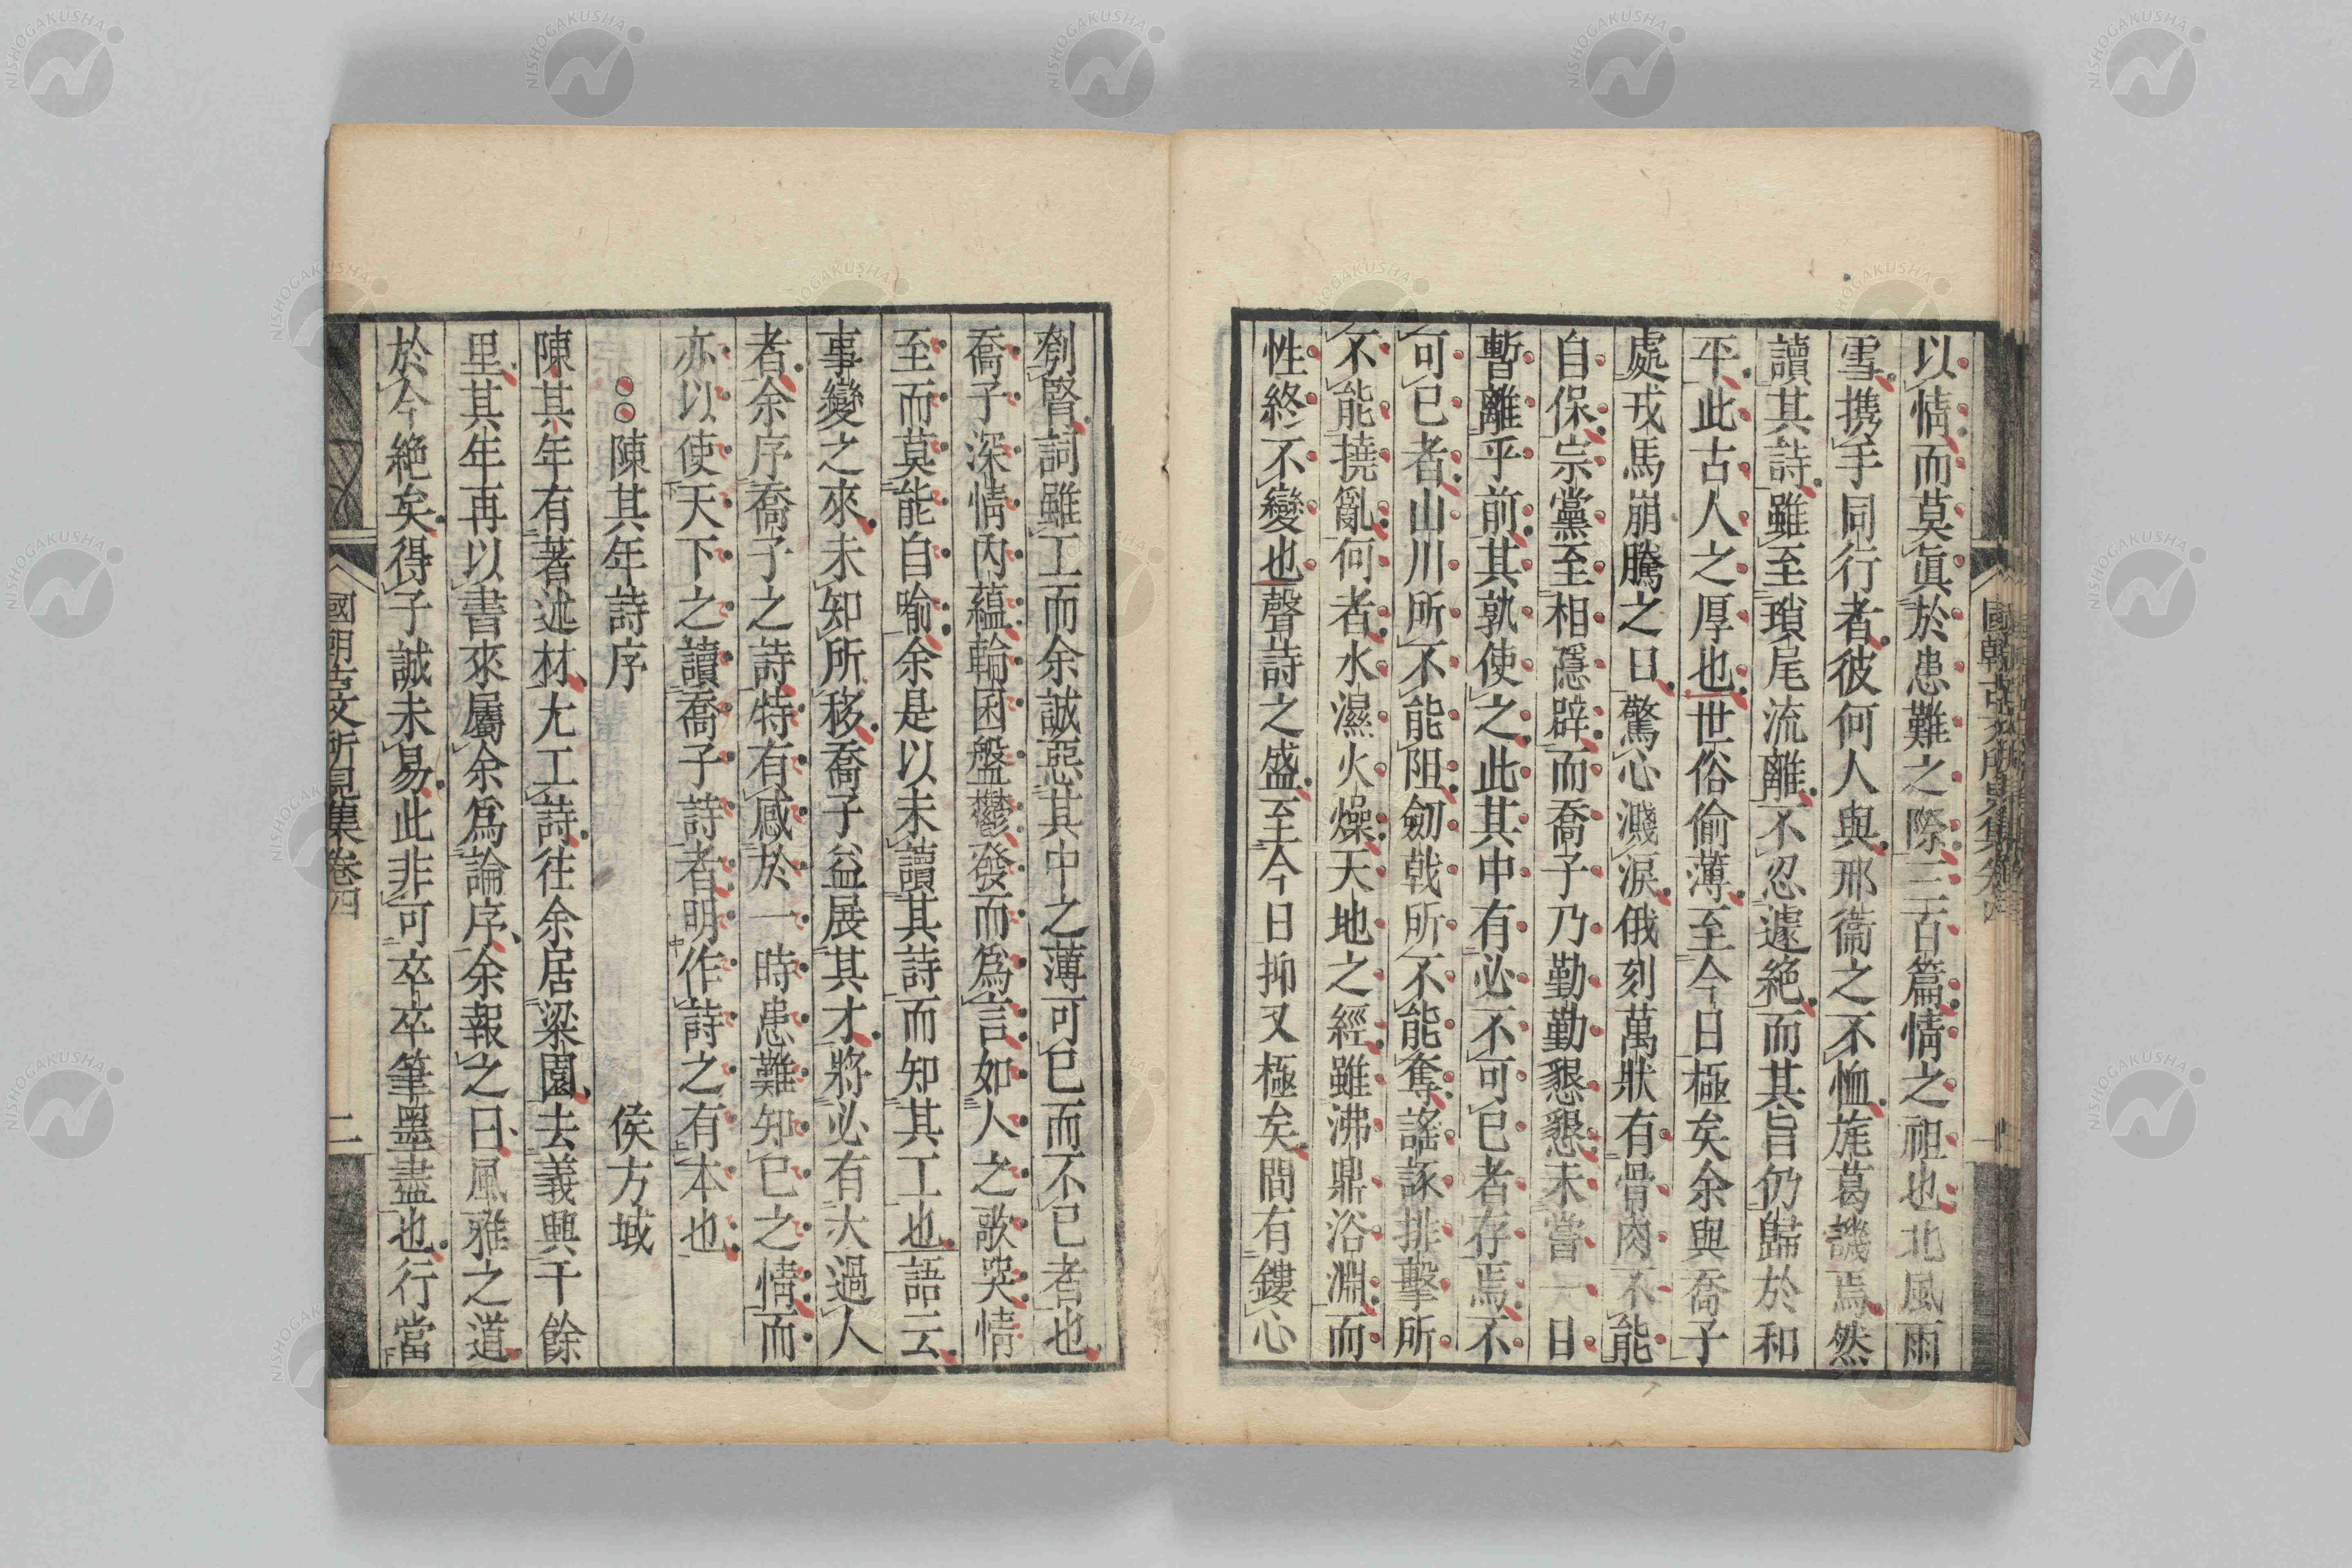 以情而莫眞於患難之際三百篇情之祖也北風雨
雪携手同行者彼何人與邢衞之不恤旄葛譏焉然
讀其詩雖至瑣尾流離不忍遽絶而其旨仍歸於和
平此古人之厚也世俗偷薄至今日極矣余與喬子
處戎馬崩騰之日驚心濺淚俄刻萬狀有骨肉不能
自保宗黨至相隱辟而喬子乃勤勤懇懇未嘗一日
暫離乎前其孰使之此其中有必不可已者存焉不
可已者山川所不能阻劒戟所不能奪謠諑排擊所
不能撓亂何者水濕火燥天地之經雖沸鼎浴淵而
性終不變也聲詩之盛至今日抑又極矣間有鏤心
刳腎詞雖工而余誠惡其中之薄可已而不已者也
喬子深情内蘊輪囷盤鬱發而爲言如人之歌哭情
至而莫能自喻余是以未讀其詩而知其工也語云
事變之來未知所移喬子益展其才將必有大過人
者余序喬子之詩特有感於一時患難知已之情而
亦以使天下之讀喬子詩者明作詩之有本也
陳其年詩序 侯方域
陳其年有著述材尤工詩往余居梁園去義興千餘
里其年再以書來屬余爲論序余報之曰風雅之道
於今絶矣得子誠未易此非可卒卒筆墨盡也行當
國朝古文所見集卷四 二
NISHOGAKUSHA